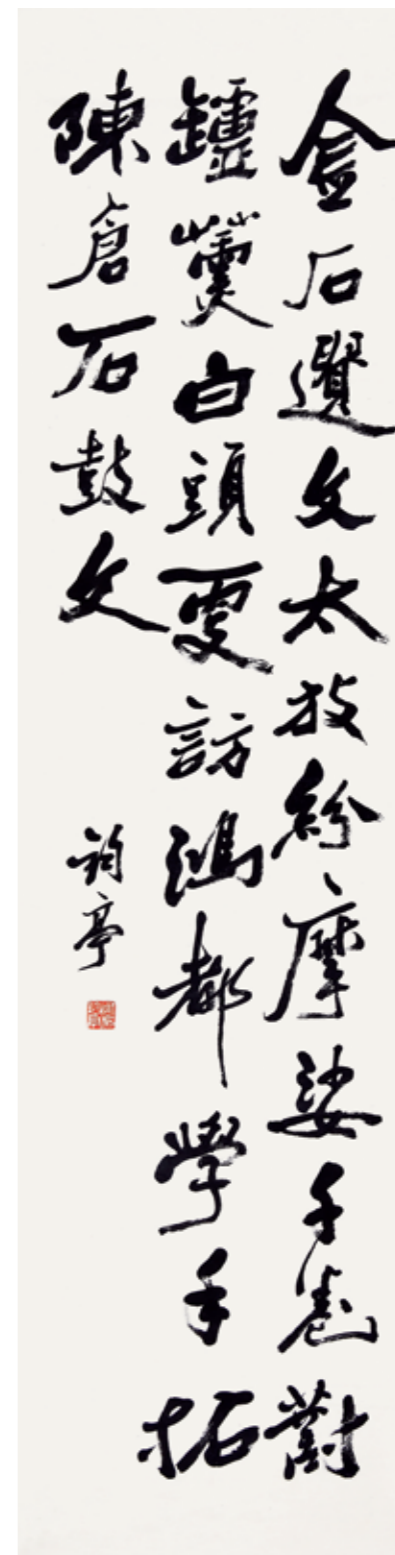 金石遺文太放紛摩娑千卷對
罏薰白頭更訪鴻都學手拓
陳倉石鼓文
亭